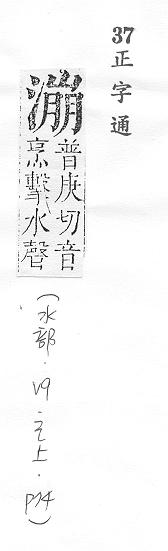 37
正字通
漰
普庚切音
烹擊水聲
(水部．V9之上．P74)